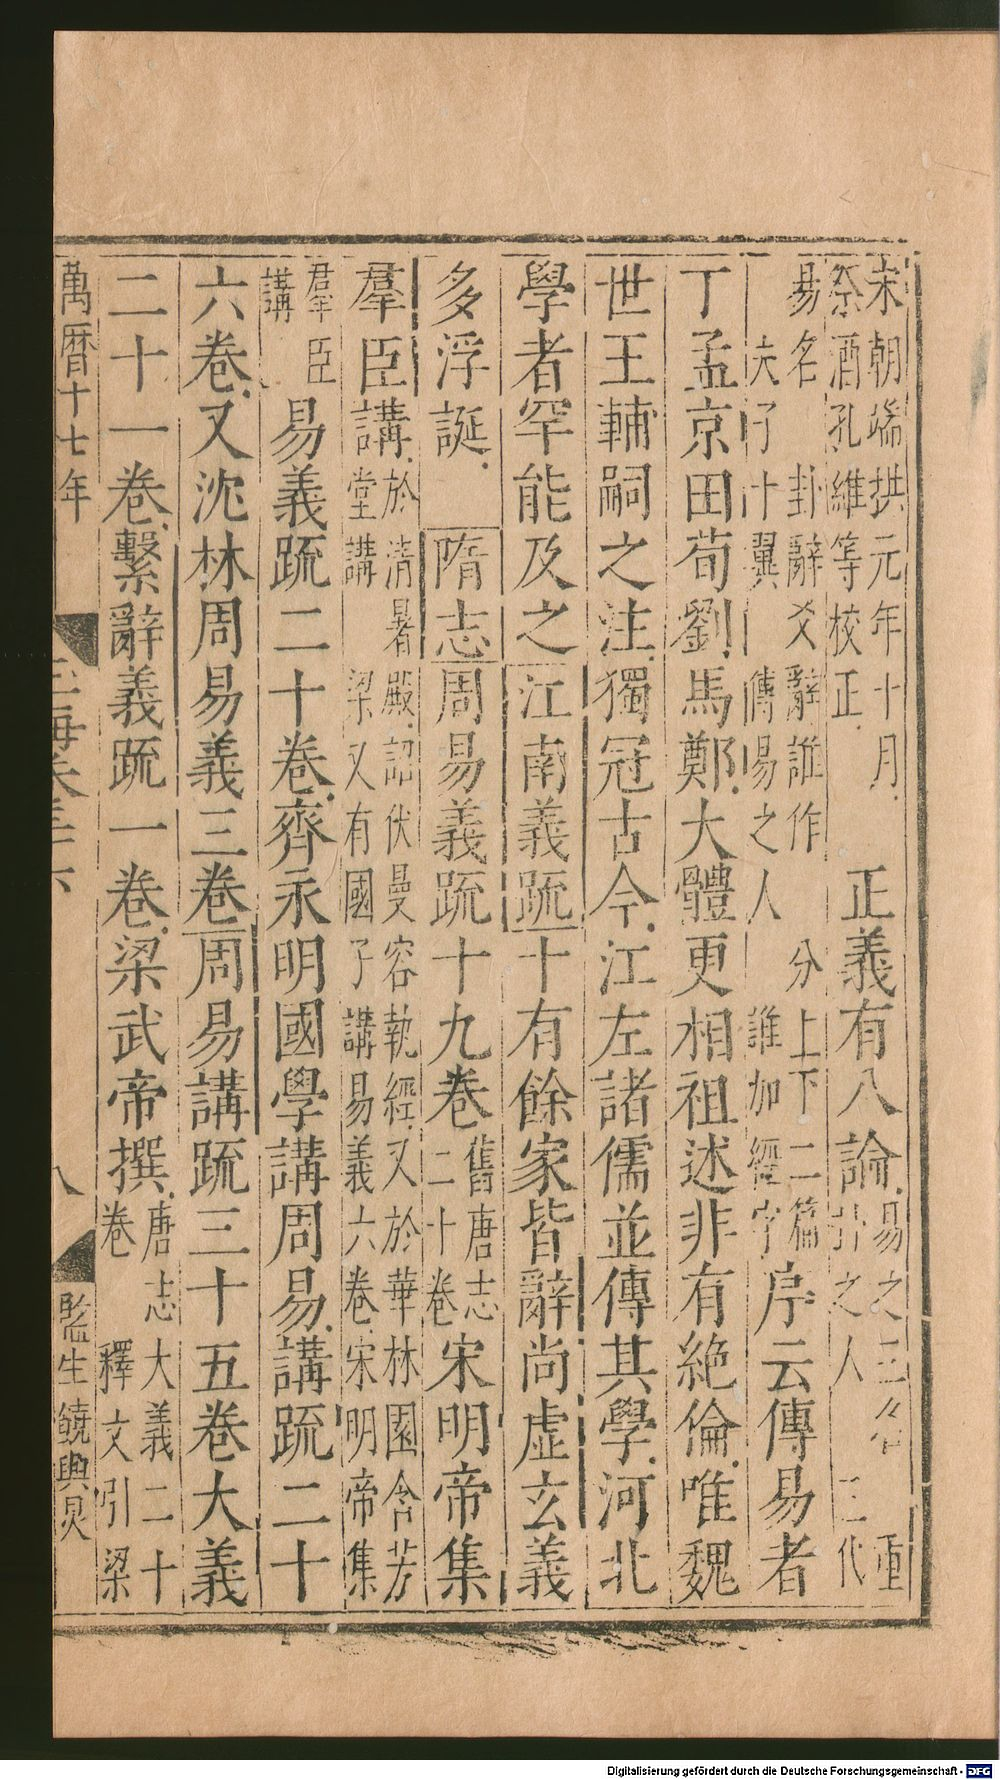 宋朝端拱元年十月 祭酒孔維等校正 正義有八論 易之三名 重
易名 卦辭爻辭誰作 分上下二篇 三代
夫子十翼 傳易之人 誰加經字 序云傳易者
丁孟京田荀劉馬鄭大體更相祖述非有絕倫唯魏
世王輔嗣之注獨冠古今江左諸儒並傳其學河北
學者罕能及之江南義䟽十有餘家皆辭尚虛玄義
多浮誕隋志周易義䟽十九卷舊唐志二十卷宋明帝集
羣臣講於清暑殿詔伏曼容執經又於華林園含芳堂講梁又有國子講易義六卷宋明帝集
群臣講易義䟽二十卷齊永明國學講周易講䟽二十
六卷又沈林周易義三卷周易講䟽三十五卷大義
二十一卷繫辭義䟽一卷梁武帝撰唐志大義二十卷釋文引梁
萬曆十七年 玉海卷三十六 八 監生饒與炅
Digitalisierung gefördert durch die Deutsche Forschungsgemeinschaft - DFG